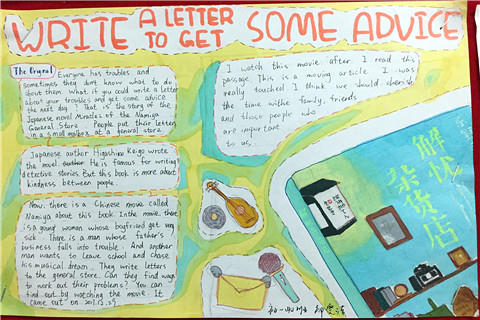 WRITE A LETTER TO GET SOME ADVICE
The Orignal Everyone has troubles and
sometimes they don't know what to do
about them. What if you could write a letter
about your troubles and get some advice
the next day? That is the story of the
Japanese novel Miracles of the Namiya
General Store. People put their letters
in a small mailbox at a general store.
Japanese author Higashino Keigo wrote
the novel. He is famous for writing
detective stories. But this book is more about
kindness between people.
Now, there is a Chinese movie called
Namiya about this book. In the movie, there
is a young woman whose boyfriend get very
sick. There is a man whose father's
business falls into trouble. And another
man wants to leave school and chase
his musical dream. They write letters
to the general store. Can they find ways
to work out their problems? You can
find out by watching the movie. It
came out on 2017.12.29.
I watch this movie after I read this
passage. This is a moving article. I was
really touched. I think we should cherish
the time withe family, friends
and those people who
are important
to us.
解忧
杂货店